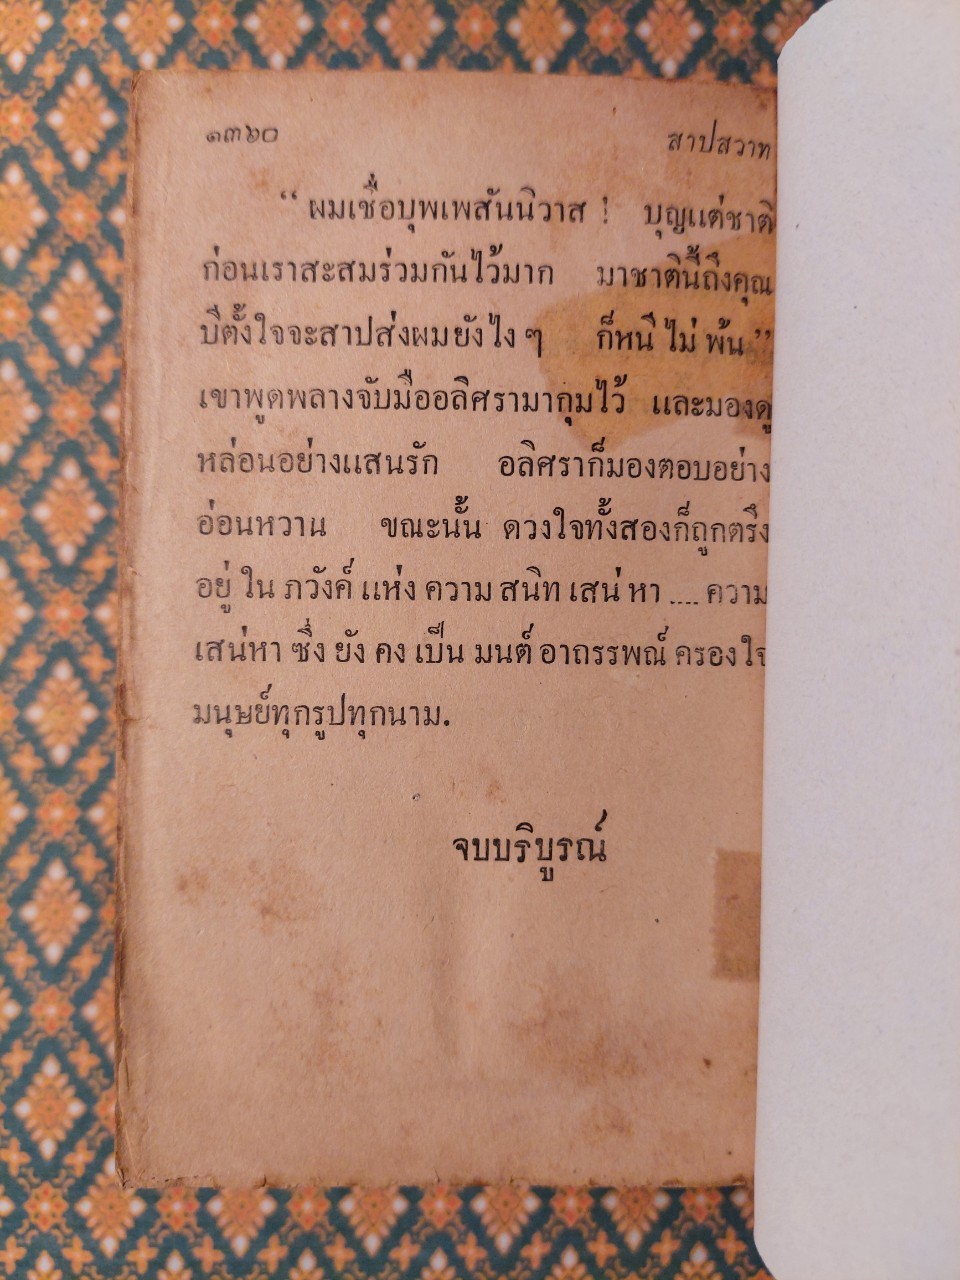 ๑๓๖๐ สาปสวาท
“ ผมเชื่อบุพเพสันนิวาส ! บุญแต่ชาติ
ก่อนเราสะสมร่วมกันไว้มาก มาชาตินี้ถึงคุณ
บีตั้งใจจะสาปส่งผมยังไง ๆ ก็หนีไม่พ้น ”
เขาพูดพลางจับมืออลิศรามากุมไว้ และมองดู
หล่อนอย่างแสนรัก อลิศราก็มองตอบอย่าง
อ่อนหวาน ขณะนั้น ดวงใจทั้งสองก็ถูกตรึง
อยู่ ใน ภวังค์ แห่ง ความ สนิท เสน่ หา .... ความ
เสน่หา ซึ่ง ยัง คง เป็น มนต์ อาถรรพณ์ ครองใจ
มนุษย์ทุกรูปทุกนาม.
จบบริบูรณ์